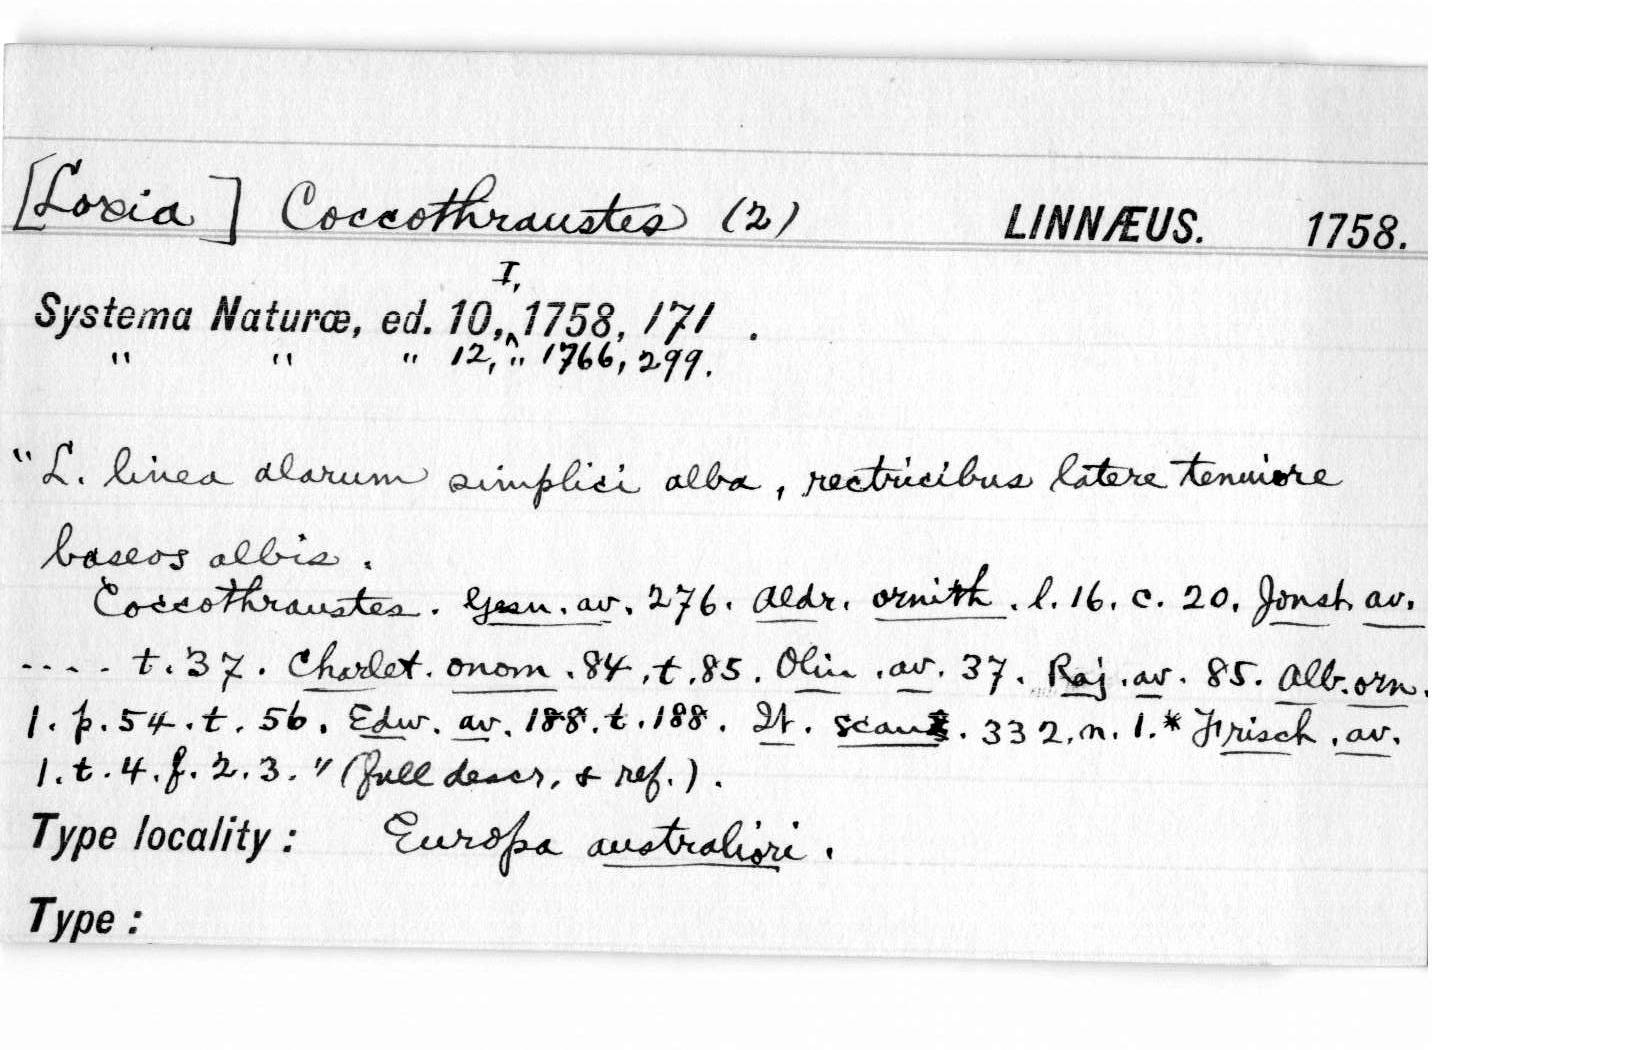 [Loxia] Coccothraustes (2) LINNÆUS. 1758.
I,
Systema Naturæ, ed. 10, 1758, 171.
" " " 12, " 1766, 299.
"L. linea alarum simplici alba, rectricibus latere tenuiore
baseos albis.
Coccothraustes. Gesn. av. 276. Aldr. ornith. l. 16. c. 20. Jonst. av.
---- t. 37. Charlet. onom. 84. t. 85. Olin. av. 37. Raj. av. 85. Alb. orn.
1. p. 54. t. 56. Edw. av. 188. t. 188. It. scan. 332. n. 1.* Frisch. av.
1. t. 4. f. 2. 3." (full descr. & ref.).
Type locality: Europa australiori.
Type: